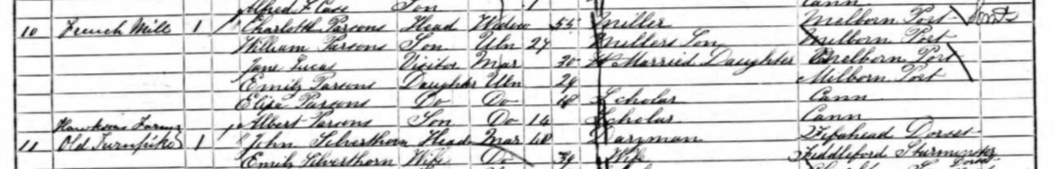 Alfred F Case Son 1 Cann
10 French Mill 1 Charlott Parsons Head Widow 55 Miller Melborn Port
William Parsons Son Un 27 Millers Son Melborn Port
Jane Lucas Visitor Mar 30 Married Daughter Melborn Port
Emily Parsons Daughter Un 29 Milborn Port
Eliza Parsons Do Do 18 Scholar Cann
Albert Parsons Son Do 14 Scholar Cann
11 Old Turnpike 1 John Silverthorn Head Mar 48 Daryman Dorset
Emily Silverthorn Wife Do 39 Wife Fiddleford Sturminster Dorset